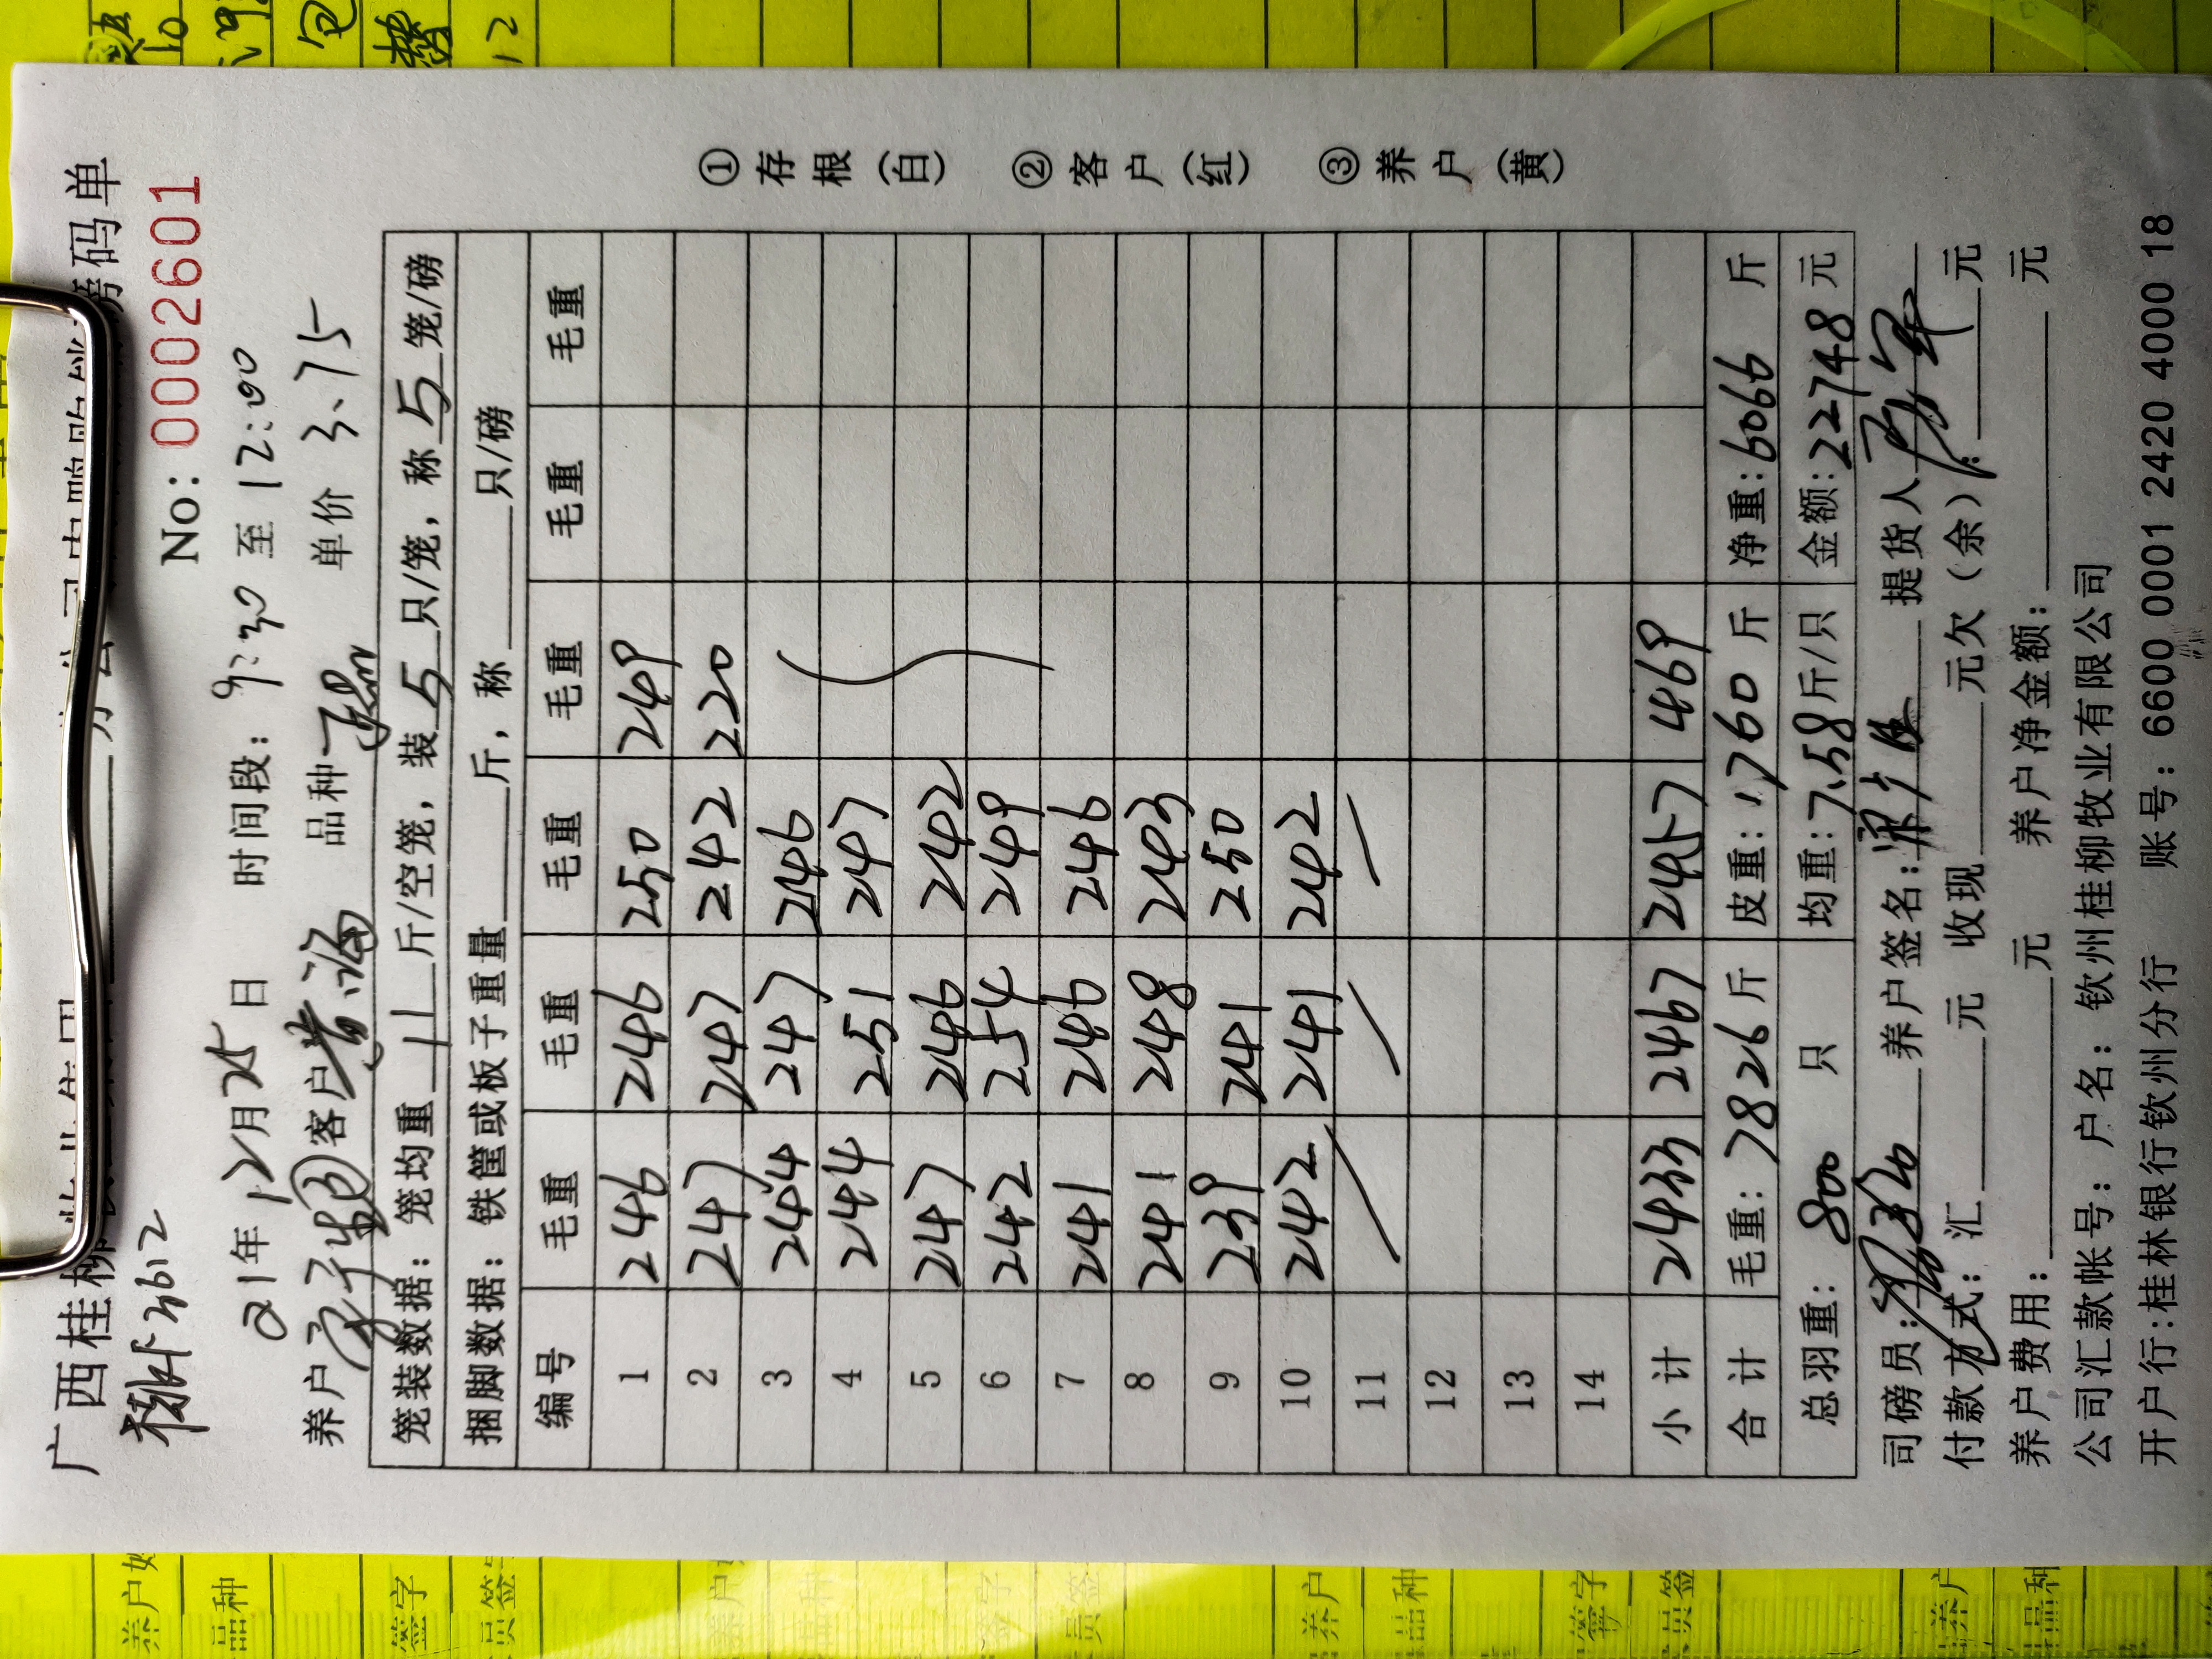 广西桂柳
磅码单
No: 0002601
3612
21年12月25日 时间段: 9:30至12:00
养户 客户 品种 单价 3.75
笼装数据: 笼均重 11 斤/空笼, 装 5 只/笼, 称 5 笼/磅
捆脚数据: 铁筐或板子重量 斤, 称 只/磅
编号 毛重 毛重 毛重 毛重 毛重 毛重
1 246 246 250 249
2 247 247 242 220
3 244 247 246
4 244 251 247
5 247 246 242
6 242 254 249
7 241 246 246
8 241 248 243
9 239 241 250
10 242 241 242
11
12
13
14
小计 2433 2467 2457 469
合计 毛重: 7826斤 皮重: 1760斤 净重: 6066 斤
总羽重: 800 只 均重: 7.58斤/只 金额: 22748元
司磅员: 养户签名: 提货人
付款方式: 汇 元 收现 元欠(余): 元
养户费用: 元 养户净金额: 元
公司汇款帐号: 户名: 钦州桂柳牧业有限公司
开户行:桂林银行钦州分行 账号: 6600 0001 2420 4000 18
①存根(白) ②客户(红) ③养户(黄)